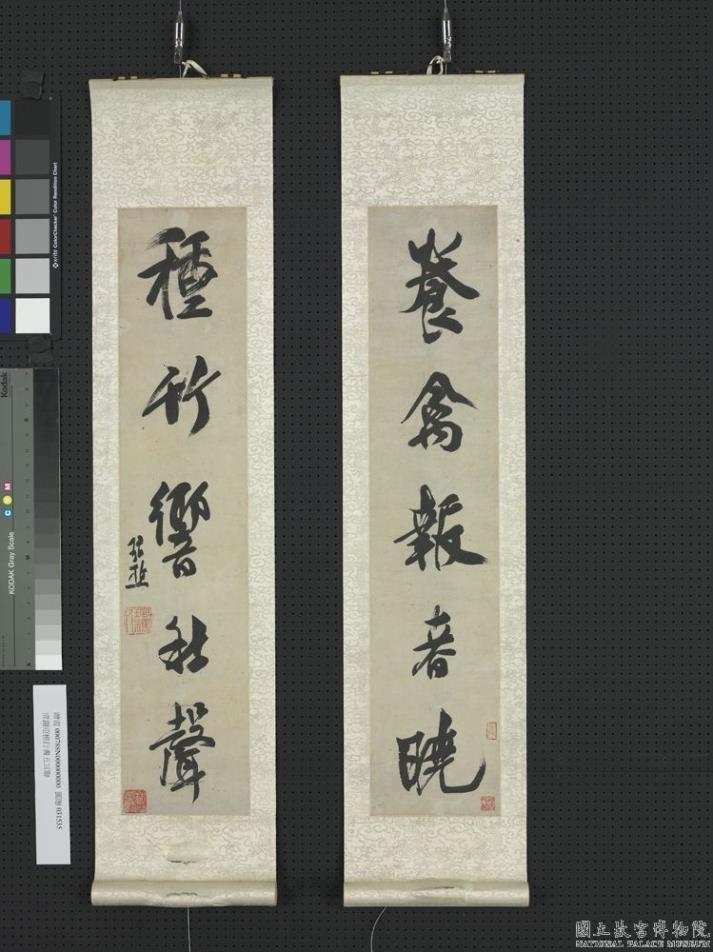 養禽報春曉
種竹響秋聲
000788N000000000
031535
Kodak
KODAK Gray Scale
C
M
國立故宮博物院
NATIONAL PALACE MUSEUM